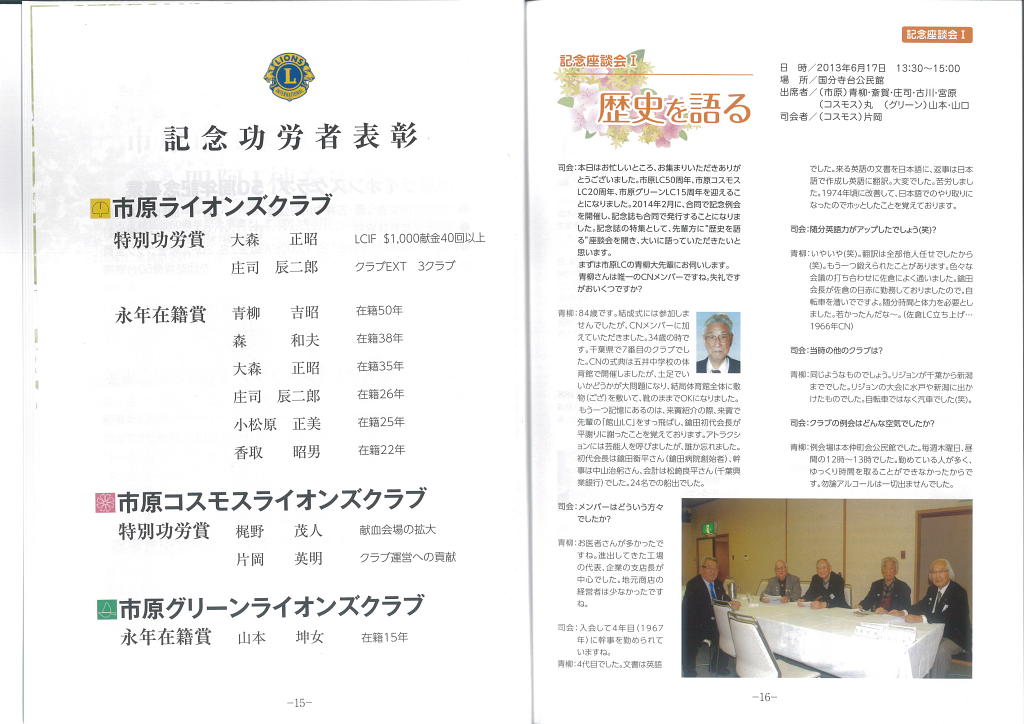 LIONS
L
INTERNATIONAL
記念功労者表彰
市原ライオンズクラブ
特別功労賞 大森 正昭 LCIF $1,000献金40回以上
庄司 辰二郎 クラブEXT 3クラブ
永年在籍賞 青柳 吉昭 在籍50年
森 和夫 在籍38年
大森 正昭 在籍35年
庄司 辰二郎 在籍26年
小松原 正美 在籍25年
香取 昭男 在籍22年
市原コスモスライオンズクラブ
特別功労賞 梶野 茂人 献血会場の拡大
片岡 英明 クラブ運営への貢献
市原グリーンライオンズクラブ
永年在籍賞 山本 坤女 在籍15年
-15-
記念座談会Ⅰ
記念座談会Ⅰ
歴史を語る
日 時/2013年6月17日 13:30~15:00
場 所/国分寺台公民館
出席者/(市原)青柳・斎賀・庄司・古川・宮原
(コスモス)丸 (グリーン)山本・山口
司会者/(コスモス)片岡
司会:本日はお忙しいところ、お集まりいただきありが
とうございました。市原LC50周年、市原コスモス
LC20周年、市原グリーンLC15周年を迎えるこ
とになりました。2014年2月に、合同で記念例会
を開催し、記念誌も合同で発行することになりま
した。記念誌の特集として、先輩方に"歴史を語
る"座談会を開き、大いに語っていただきたいと
思います。
まずは市原LCの青柳大先輩にお伺いします。
青柳さんは唯一のCNメンバーですね。失礼です
がおいくつですか?
青柳:84歳です。結成式には参加しま
せんでしたが、CNメンバーに加
えていただきました。34歳の時で
す。千葉県で7番目のクラブでし
た。CNの式典は五井中学校の体
育館で開催しましたが、土足でい
いかどうかが大問題になり、結局体育館全体に敷
物(ござ)を敷いて、靴のままでOKになりました。
もう一つ記憶にあるのは、来賓紹介の際、来賓で
先輩の「館山LC」をすっ飛ばし、鎗田初代会長が
平謝りに謝ったことを覚えております。アトラク
ションには芸能人を呼びましたが、誰か忘れました。
初代会長は鎗田衛平さん(鎗田病院創始者)、幹
事は中山治躬さん、会計は松崎良平さん(千葉興
業銀行)でした。24名での船出でした。
司会:メンバーはどういう方々
でしたか?
青柳:お医者さんが多かったで
すね。進出してきた工場
の代表、企業の支店長が
中心でした。地元商店の
経営者は少なかったです
ね。
司会:入会して4年目(1967
年)に幹事を勤められて
いますね。
青柳:4代目でした。文書は英語
でした。来る英語の文書を日本語に、返事は日本
語で作成し英語に翻訳。大変でした。苦労しまし
た。1974年頃に改善して、日本語でのやり取りに
なったのでホッとしたことを覚えております。
司会:随分英語力がアップしたでしょう(笑)?
青柳:いやいや(笑)。翻訳は全部他人任せでしたから
(笑)。もう一つ鍛えられたことがあります。色々な
会議の打ち合わせに佐倉によく通いました。鎗田
会長が佐倉の日赤に勤務しておりましたので。自
転車を漕いでですよ。随分時間と体力を必要とし
ました。若かったんだな~。(佐倉LC立ち上げ…
1966年CN)
司会:当時の他のクラブは?
青柳:同じようなものでしょう。リジョンが千葉から新潟
まででした。リジョンの大会に水戸や新潟に出か
けたものでした。自転車ではなく汽車でした(笑)。
司会:クラブの例会はどんな空気でしたか?
青柳:例会場は本仲町会公民館でした。毎週木曜日、昼
間の12時~13時でした。勤めている人が多く、
ゆっくり時間を取ることができなかったからで
す。勿論アルコールは一切出ませんでした。
-16-